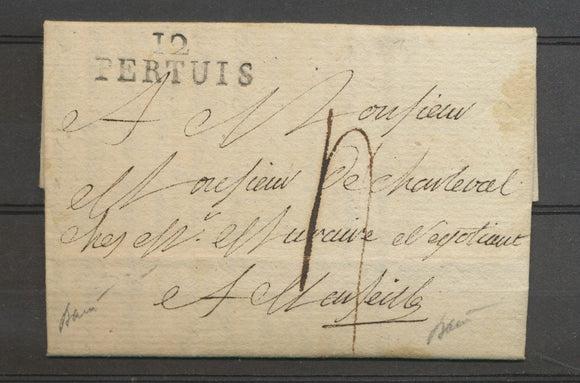 12
PERTUIS
A Monsieur
Monsieur De Charleval
chez Mr. Muraire Negotiant
A Marseille